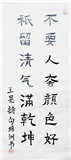 不要人夸颜色好
祇留清气满乾坤
王冕诗